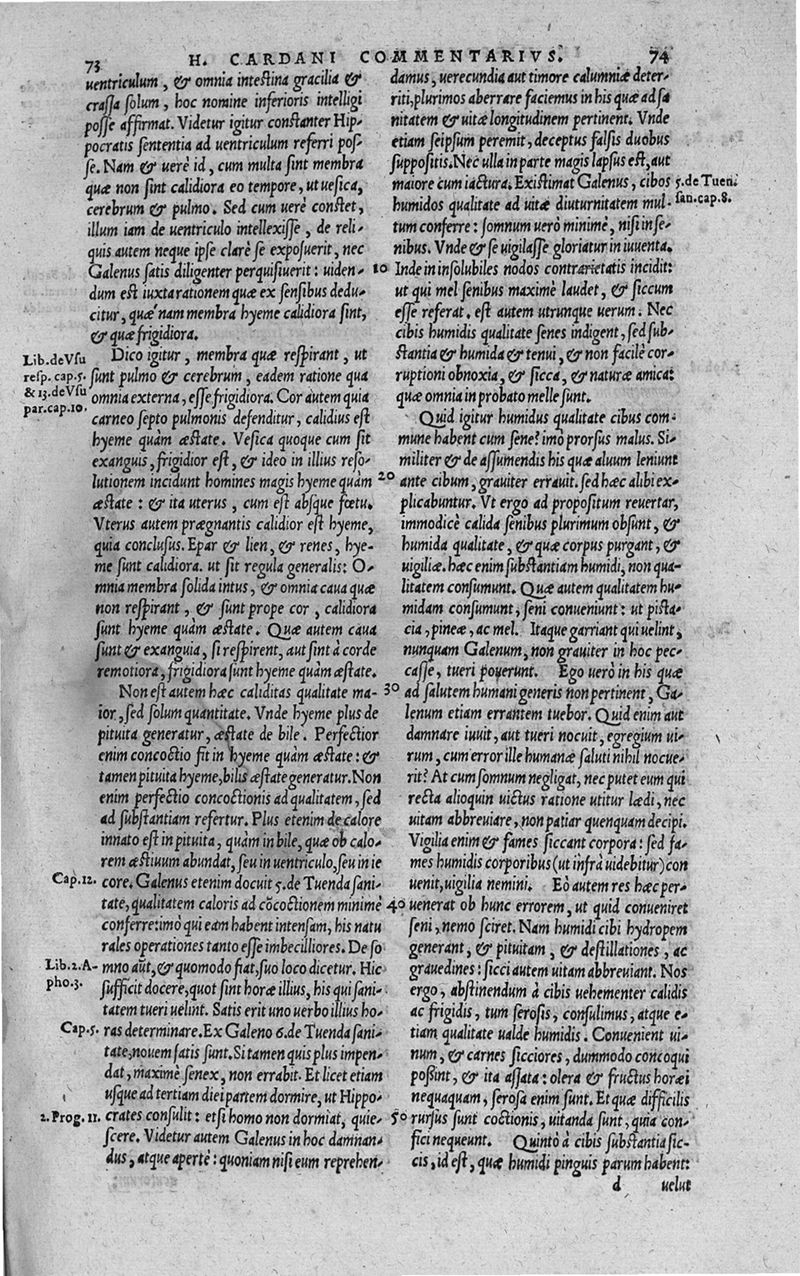 73 H. CARDANI COMMENTARIVS. 74
uentriculum, & omnia intestina gracilia &
crassa solum, hoc nomine inferioris intelligi
posse affirmat. Videtur igitur constanter Hip-
pocratis sententia ad uentriculum referri pos-
se. Nam & uerè id, cum multa sint membra
quæ non sint calidiora eo tempore, ut uesica,
cerebrum & pulmo. Sed cum uerè constet,
illum iam de uentriculo intellexisse, de reli-
quis autem neque ipse clarè se exposuerit, nec
Galenus satis diligenter perquisiuerit: uiden-
dum est iuxta rationem quæ ex sensibus dedu-
citur, quæ nam membra hyeme calidiora sint,
& quæ frigidiora.
Lib. de Vsu
resp. cap. 5.
& 13. de Vsu
par. cap. 10.
Dico igitur, membra quæ respirant, ut
sunt pulmo & cerebrum, eadem ratione qua
omnia externa, esse frigidiora. Cor autem quia
carneo septo pulmonis defenditur, calidius est
hyeme quàm æstate. Vesica quoque cum sit
exanguis, frigidior est, & ideo in illius reso-
lutionem incidunt homines magis hyeme quàm
æstate: & ita uterus, cum est absque fœtu.
Vterus autem prægnantis calidior est hyeme,
quia conclusus. Epar & lien, & renes, hye-
me sunt calidiora. ut sit regula generalis: O-
mnia membra solida intus, & omnia caua quæ
non respirant, & sunt prope cor, calidiora
sunt hyeme quàm æstate. Quæ autem caua
sunt & exanguia, si respirent, aut sint à corde
remotiora, frigidiora sunt hyeme quàm æstate.
Non est autem hæc caliditas qualitate ma-
ior, sed solum quantitate. Vnde hyeme plus de
pituita generatur, æstate de bile. Perfectior
enim concoctio fit in hyeme quàm æstate: &
tamen pituita hyeme, bilis æstate generatur. Non
enim perfectio concoctionis ad qualitatem, sed
ad substantiam refertur. Plus etenim de calore
innato est in pituita, quàm in bile, quæ ob calo-
rem æstiuum abundat, seu in uentriculo, seu in ie
Cap. 12.
core. Galenus etenim docuit 5. de Tuenda sani-
tate, qualitatem caloris ad cōcoctionem minimè
conferre: imò qui eam habent intensam, his natu
rales operationes tanto esse imbecilliores. De so
Lib. 2. A-
pho. 3.
mno aūt, & quomodo fiat, suo loco dicetur. Hic
sufficit docere, quot sint horæ illius, his qui sani-
tatem tueri uelint. Satis erit uno uerbo illius ho-
Cap. 5.
ras determinare. Ex Galeno 6. de Tuenda sani-
tate, nouem satis sunt. Si tamen quis plus impen-
dat, maximè senex, non errabit. Et licet etiam
usque ad tertiam diei partem dormire, ut Hippo-
2. Prog. 11.
crates consulit: etsi homo non dormiat, quie-
scere. Videtur autem Galenus in hoc damnan-
dus, atque apertè: quoniam nisi eum reprehen-
damus, uerecundia aut timore calumniæ deter-
riti, plurimos aberrare faciemus in his quæ ad sa
nitatem & uitæ longitudinem pertinent. Vnde
etiam seipsum peremit, deceptus falsis duobus
suppositis. Nec ulla in parte magis lapsus est, aut
maiore cum iactura. Existimat Galenus, cibos
5. de Tuen.
san. cap. 8.
humidos qualitate ad uitæ diuturnitatem mul-
tum conferre: somnum uerò minimè, nisi in se-
nibus. Vnde & se uigilasse gloriatur in iuuenta.
10 Inde in insolubiles nodos contrarietatis incidit:
ut qui mel senibus maximè laudet, & siccum
esse referat. est autem utrunque uerum. Nec
cibis humidis qualitate senes indigent, sed sub-
stantia & humida & tenui, & non facilè cor-
ruptioni obnoxia, & sicca, & naturæ amica:
quæ omnia in probato melle sunt.
Quid igitur humidus qualitate cibus com-
mune habent cum sene? imò prorsus malus. Si-
militer & de assumendis his quæ aluum leniunt
20 ante cibum, grauiter errauit. sed hæc alibi ex-
plicabuntur. Vt ergo ad propositum reuertar,
immodicè calida senibus plurimum obsunt, &
humida qualitate, & quæ corpus purgant, &
uigiliæ. hæc enim substantiam humidi, non qua-
litatem consumunt. Quæ autem qualitatem hu-
midam consumunt, seni conueniunt: ut pista-
cia, pineæ, ac mel. Itaque garriant qui uelint,
nunquam Galenum, non grauiter in hoc pec-
casse, tueri poterunt. Ego uerò in his quæ
30 ad salutem humani generis non pertinent, Ga-
lenum etiam errantem tuebor. Quid enim aut
damnare iuuit, aut tueri nocuit, egregium ui-
rum, cum error ille humanæ saluti nihil nocue-
rit? At cum somnum negligat, nec putet eum qui
recta alioquin uictus ratione utitur lædi, nec
uitam abbreuiare, non patiar quenquam decipi.
Vigilia enim & fames siccant corpora: sed fa-
mes humidis corporibus (ut infrà uidebitur) con
uenit, uigilia nemini. Eò autem res hæc per-
40 uenerat ob hunc errorem, ut quid conueniret
seni, nemo sciret. Nam humidi cibi hydropem
generant, & pituitam, & destillationes, ac
grauedines: sicci autem uitam abbreuiant. Nos
ergo, abstinendum à cibis uehementer calidis
ac frigidis, tum serosis, consulimus, atque e-
tiam qualitate ualde humidis. Conuenient ui-
num, & carnes sicciores, dummodo concoqui
possint, & ita assata: olera & fructus horæi
nequaquam, serosa enim sunt. Et quæ difficilis
50 rursus sunt coctionis, uitanda sunt, quia con-
fici nequeunt. Quintò à cibis substantia sic-
cis, id est, quæ humidi pinguis parum habent:
d uelut